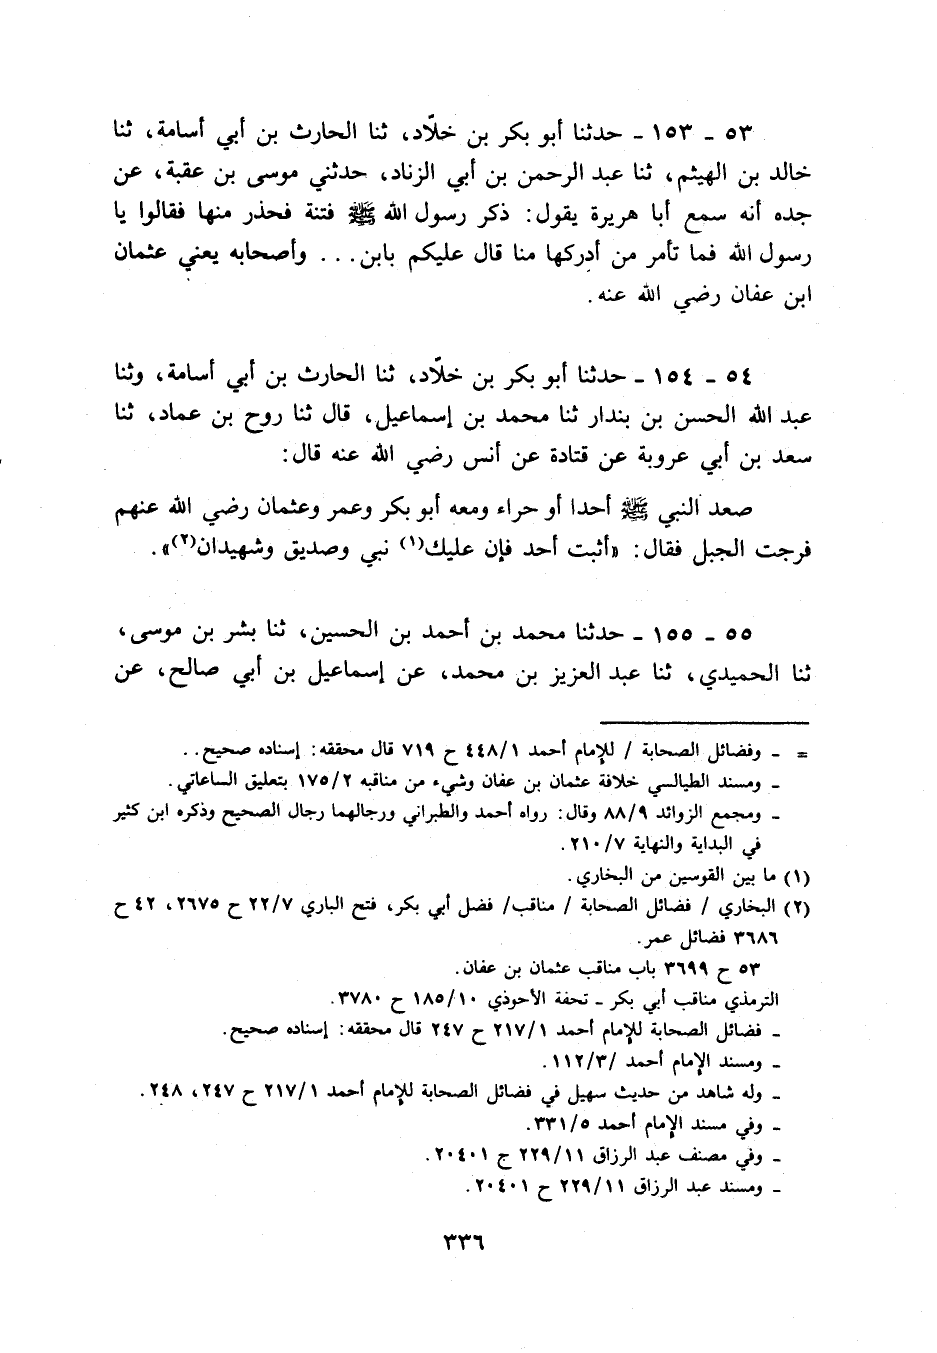 ٥٣ ـ ١٥٣ ـ حدثنا أبو بكر بن خلّاد، ثنا الحارث بن أبي أسامة، ثنا
خالد بن الهيثم، ثنا عبد الرحمن بن أبي الزناد، حدثني موسى بن عقبة، عن
جده أنه سمع أبا هريرة يقول: ذكر رسول الله ﷺ فتنة فحذر منها فقالوا يا
رسول الله فما تأمر من أدركها منا قال عليكم بابن... وأصحابه يعني عثمان
ابن عفان رضي الله عنه.
٥٤ ـ ١٥٤ ـ حدثنا أبو بكر بن خلّاد، ثنا الحارث بن أبي أسامة، وثنا
عبد الله الحسن بن بندار ثنا محمد بن إسماعيل، قال ثنا روح بن عماد، ثنا
سعد بن أبي عروبة عن قتادة عن أنس رضي الله عنه قال:
صعد النبي ﷺ أحدا أو حراء ومعه أبو بكر وعمر وعثمان رضي الله عنهم
فرجت الجبل فقال: «أثبت أحد فإن عليك(١) نبي وصديق وشهيدان(٢)».
٥٥ ـ ١٥٥ ـ حدثنا محمد بن أحمد بن الحسين، ثنا بشر بن موسى،
ثنا الحميدي، ثنا عبد العزيز بن محمد، عن إسماعيل بن أبي صالح، عن
= ـ وفضائل الصحابة / للإمام أحمد ٤٤٨/١ ح ٧١٩ قال محققه: إسناده صحيح..
ـ ومسند الطيالسي خلافة عثمان بن عفان وشيء من مناقبه ١٧٥/٢ بتعليق الساعاتي.
ـ ومجمع الزوائد ٨٨/٩ وقال: رواه أحمد والطبراني ورجالهما رجال الصحيح وذكره ابن كثير
في البداية والنهاية ٢١٠/٧.
(١) ما بين القوسين من البخاري.
(٢) البخاري / فضائل الصحابة / مناقب/ فضل أبي بكر، فتح الباري ٢٢/٧ ح ٢٦٧٥، ٤٢ ح
٣٦٨٦ فضائل عمر.
٥٣ ح ٣٦٩٩ باب مناقب عثمان بن عفان.
الترمذي مناقب أبي بكر ـ تحفة الأحوذي ١٨٥/١٠ ح ٣٧٨٠.
ـ فضائل الصحابة للإمام أحمد ٢١٧/١ ح ٢٤٧ قال محققه: إسناده صحيح.
ـ ومسند الإمام أحمد /١١٢/٣.
ـ وله شاهد من حديث سهيل في فضائل الصحابة للإمام أحمد ٢١٧/١ ح ٢٤٧، ٢٤٨.
ـ وفي مسند الإمام أحمد ٣٣١/٥.
ـ وفي مصنف عبد الرزاق ٢٢٩/١١ ج ٢٠٤٠١.
ـ ومسند عبد الرزاق ٢٢٩/١١ ح ٢٠٤٠١.
٣٣٦